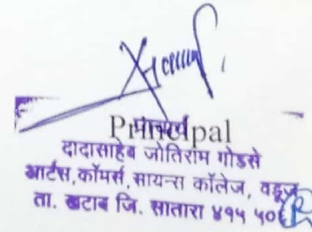 Principal
प्राचार्य
दादासाहेब जोतिराम गोडसे
आर्टस,कॉमर्स,सायन्स कॉलेज, वडूज
ता. खटाव जि. सातारा ४१५ ५०६